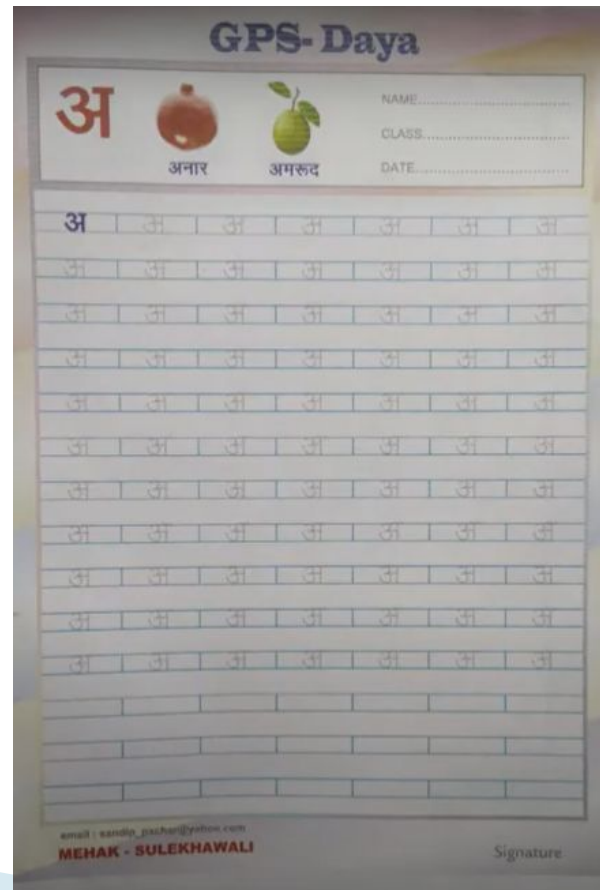 GPS-Daya
अ
NAME
CLASS
DATE
अनार अमरूद
अ अ अ अ अ अ अ
अ अ अ अ अ अ अ
अ अ अ अ अ अ अ
अ अ अ अ अ अ अ
अ अ अ अ अ अ अ
अ अ अ अ अ अ अ
अ अ अ अ अ अ अ
अ अ अ अ अ अ अ
अ अ अ अ अ अ अ
अ अ अ अ अ अ अ
अ अ अ अ अ अ अ
email : sandip_pachar@yahoo.com
MEHAK - SULEKHAWALI
Signature